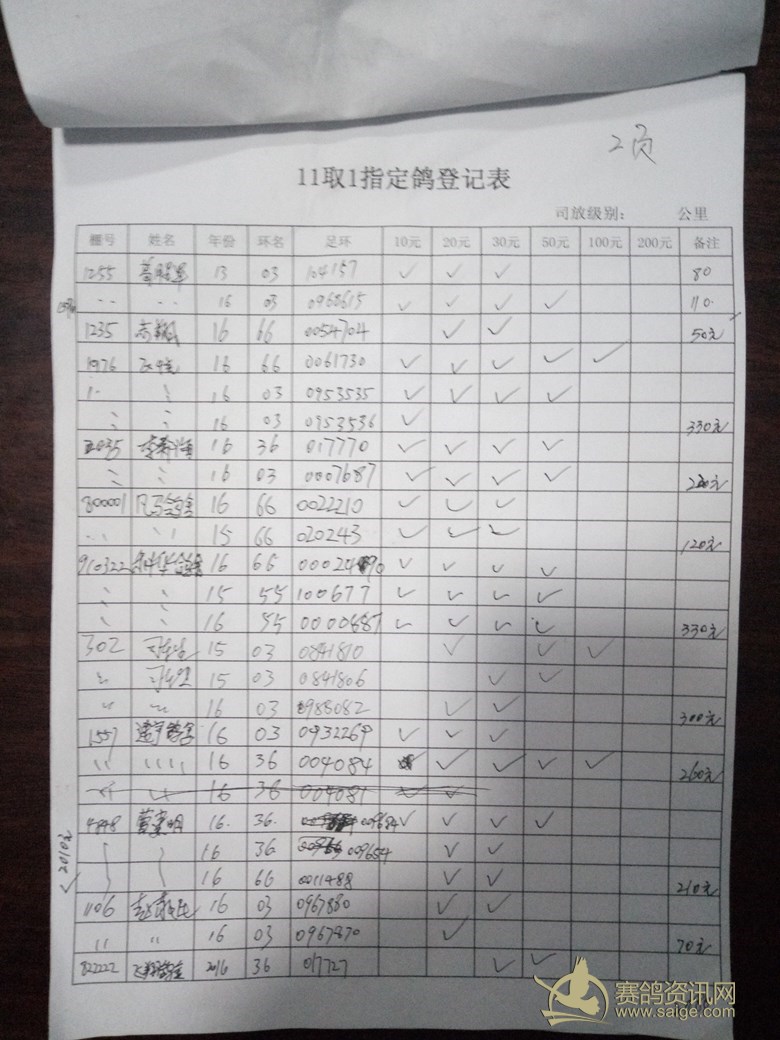 2页
11取1指定鸽登记表
司放级别： 公里
棚号 姓名 年份 环名 足环 10元 20元 30元 50元 100元 200元 备注
1255 13 03 104157 ✓ ✓ ✓ 80
·· ·· 16 03 0960615 ✓ ✓ ✓ ✓ 110
1235 16 66 0054704 ✓ ✓ 50元
1976 16 66 0061730 ✓ ✓ ✓ ✓ ✓
16 03 0953535 ✓ ✓ ✓ ✓
16 03 0953536 ✓ 330元
2035 16 36 017770 ✓ ✓ ✓ ✓
16 03 0007687 ✓ ✓ ✓ ✓ 220元
800001 16 66 0022210 ✓ ✓ ✓
15 66 020243 ✓ ✓ ✓ 120元
910322 16 66 ✓ ✓ ✓ ✓
15 55 100677 ✓ ✓ ✓ ✓
16 55 0000687 ✓ ✓ ✓ ✓ 330元
302 15 03 0841810 ✓ ✓ ✓
15 03 0841806 ✓ ✓
16 03 0988082 ✓ ✓ 300元
1557 16 03 0932269 ✓ ✓ ✓
16 36 004084 ✓ ✓ ✓ ✓ ✓ 260元
16 36 004081 ✓ ✓
16 36 009684 ✓ ✓ ✓ ✓
16 36 009654 ✓ ✓
2010元
16 66 0011488 ✓ ✓ 210元
1106 16 03 0967880 ✓ ✓
16 03 0967870 ✓ 70元
822222 2016 36 017727 ✓ ✓
赛鸽资讯网
www.saige.com